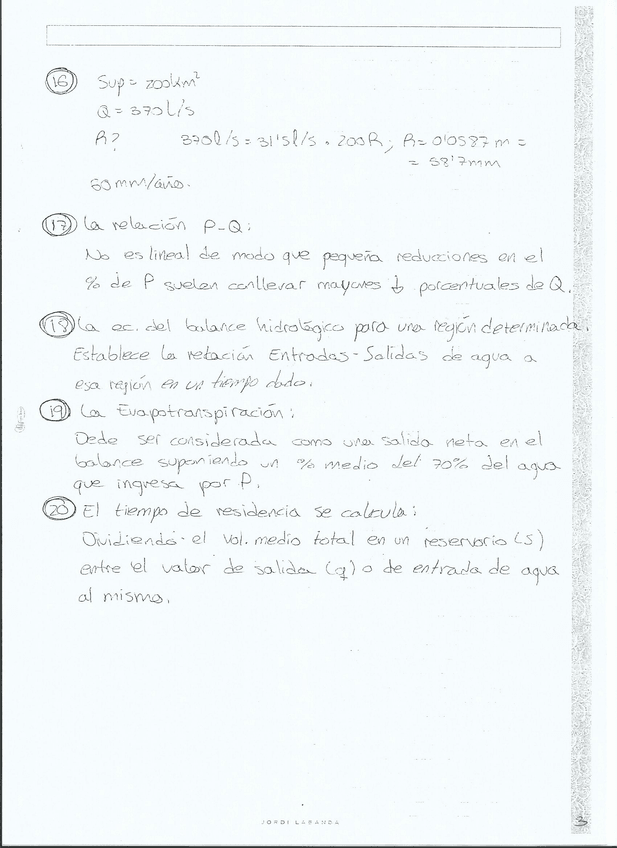 16 Sup = 200 km²
Q = 370 l/s
R? 370 l/s = 31'5 l/s · 200 R; R = 0'0587 m =
= 58'7 mm
60 mm/año.
17 La relación P-Q:
No es lineal de modo que pequeña reducciones en el
% de P suelen conllevar mayores ↓ porcentuales de Q.
18 La ec. del balance hidrológico para una región determinada:
Establece la relación Entradas-Salidas de agua a
esa región en un tiempo dado.
19 La Evapotranspiración:
Dede ser considerada como una salida neta en el
balance suponiendo un % medio del 70% del agua
que ingresa por P.
20 El tiempo de residencia se calcula:
Dividiendo el vol. medio total en un reservorio (S)
entre el valor de salida (q) o de entrada de agua
al mismo.
JORDI LABANDA
3